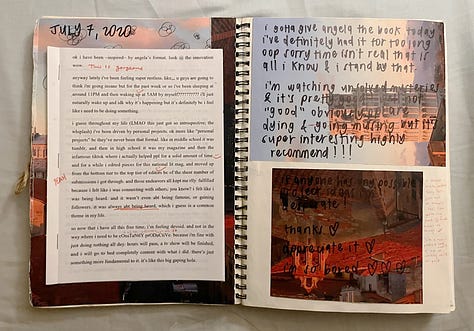 JULY 7, 2020
ok i have been ~inspired~ by angela's format. look @ the innovation
wow. This is gorgeous
anyway lately i've been feeling super restless. like,, u guys are going to
think i'm going insane but for the past week or so i've been sleeping at
around 11PM and then waking up at 5AM by myself?????????? i'll just
naturally wake up and idk why it's happening but it's definitely bc i feel
like i need to be doing something.
i guess throughout my life (LMAO this just got so introspective; the
whiplash) i've been driven by personal projects. or more like "personal
projects" bc they've never been that formal. like in middle school it was
tumblr, and then in high school it was my magazine and then the
infamous tiktok where i actually helped ppl for a solid amount of time
and for a while i edited pieces for this national lit mag, and moved up
from the bottom tier to the top tier of editors bc of the sheer number of
submissions i got through. and those endeavors all kept me rlly fulfilled
because i felt like i was connecting with others; you know? i felt like i
YEAH
was being heard. and it wasn't even abt being famous, or gaining
followers. it was always abt being heard, which i guess is a common
theme in my life.
so now that i have all this free time, i'm feeling devoid. and not in the
way where i need to be
just doing nothing all day: hours will pass, a tv show will be finished,
and i will go to bed completely content with what i did. there's just
something more fundamental to it. it's like this big gaping hole.
i gotta give angela the book today
i've definitely had it for too long
oop sorry time isn't real that is
all i know & i stand by that.
i'm watching unsolved mysteries
& it's pretty good
"good" obviously
dying & going missing but it's
super interesting highly
recommend !!!
if anyone has any possible
project ideas
desperate!
thanks ♡
appreciate it ♡
i'm so bored ♡ ♡ ♡